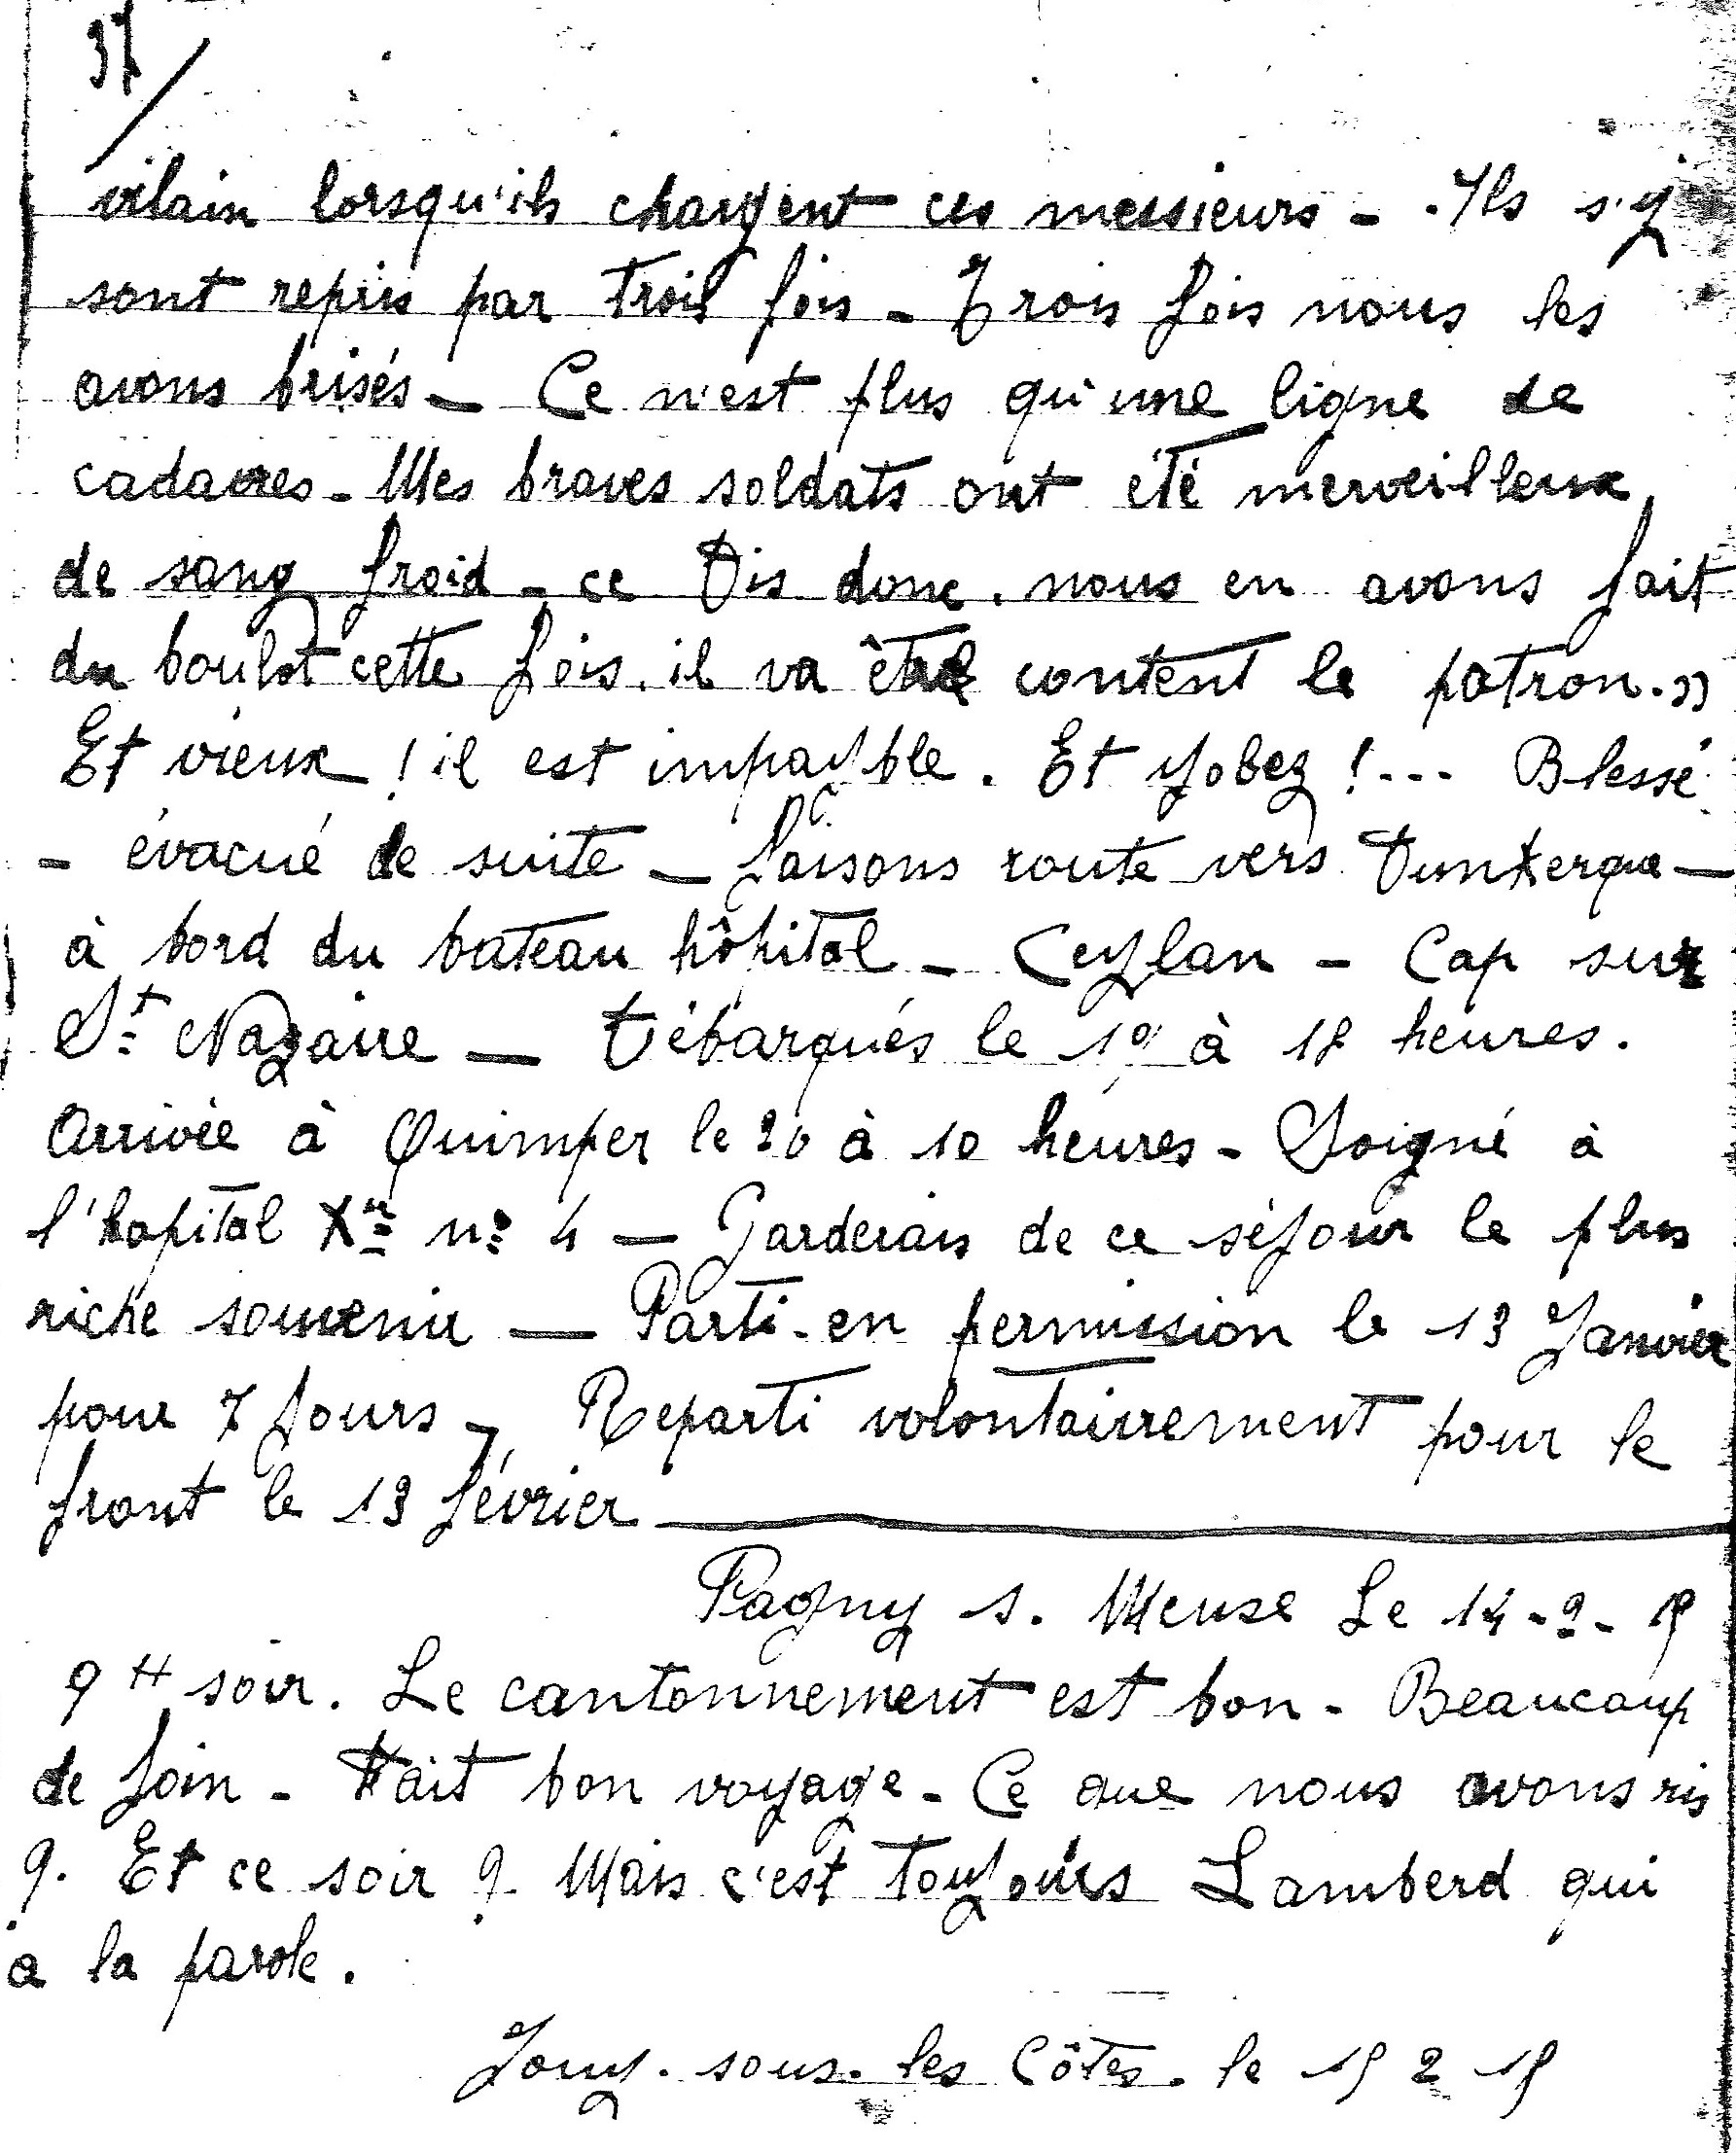 37/
vilain lorsqu'ils chargent ces messieurs - Ils s'y
sont repris par trois fois - Trois fois nous les
avons brisés - Ce n'est plus qu'une ligne de
cadavres - Mes braves soldats ont été merveilleux
de sang froid - ce Dis donc. nous en avons fait
du boulot cette fois. il va être content le patron. »
Et vieux ! il est impayble. Et Jobez !... Blessé
- évacué de suite - faisons route vers Dunkerque -
à bord du bateau hôpital - Ceylan - Cap sur
St Nazaire - Débarqués le 19 à 18 heures.
Arrivée à Quimper le 20 à 10 heures - Soigné à
l'hopital Xre no 4 - Garderais de ce séjour le plus
riche souvenir - Parti en permission le 13 Janvier
pour 7 jours - Reparti volontairement pour le
front le 13 février
Pagny s. Meuse Le 14-2-15
9 H soir. Le cantonnement est bon - Beaucoup
de foin - Fait bon voyage - Ce que nous avons ris
?. Et ce soir ? Mais c'est toujours Lamberd qui
a la parole.
Jouy. sous. les Côtes. le 15 2 15